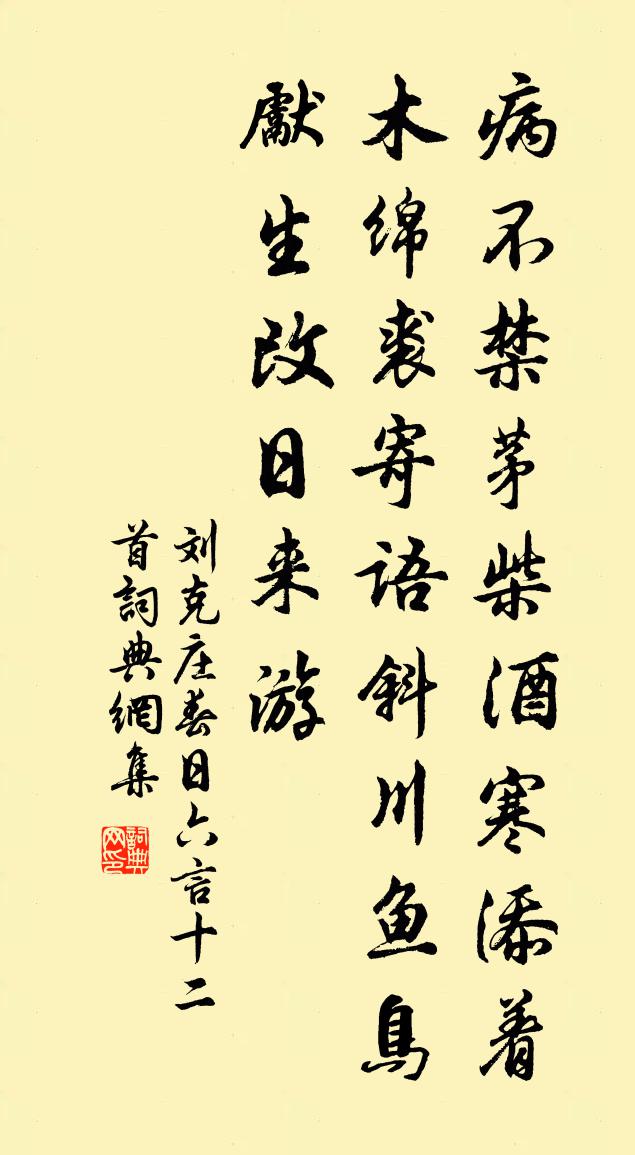 病不禁茅柴酒寒添着
木绵裘寄语斜川鱼鸟
献生改日来游
刘克庄春日六言十二
首词典网集
詞典网印